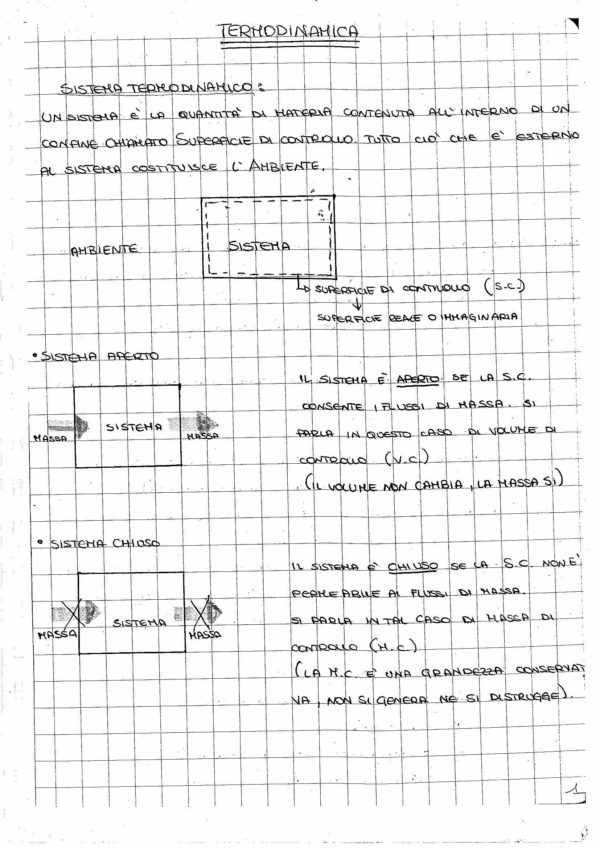 TERMODINAMICA
SISTEMA TERMODINAMICO:
UN SISTEMA È LA QUANTITÀ DI MATERIA CONTENUTA ALL'INTERNO DI UN
CONFINE CHIAMATO SUPERFICIE DI CONTROLLO. TUTTO CIÒ CHE È ESTERNO
AL SISTEMA COSTITUISCE L'AMBIENTE.
AMBIENTE
SISTEMA
SUPERFICIE DI CONTROLLO (S.C.)
SUPERFICIE REALE O IMMAGINARIA
• SISTEMA APERTO
MASSA
SISTEMA
MASSA
IL SISTEMA È APERTO SE LA S.C.
CONSENTE I FLUSSI DI MASSA. SI
PARLA IN QUESTO CASO DI VOLUME DI
CONTROLLO (V.C.)
(IL VOLUME NON CAMBIA, LA MASSA SÌ)
• SISTEMA CHIUSO
MASSA
SISTEMA
MASSA
IL SISTEMA È CHIUSO SE LA S.C. NON È
PERMEABILE AI FLUSSI DI MASSA.
SI PARLA IN TAL CASO DI MASSA DI
CONTROLLO (M.C)
(LA M.C. È UNA GRANDEZZA CONSERVATI
VA, NON SI GENERA NE SI DISTRUGGE).
1